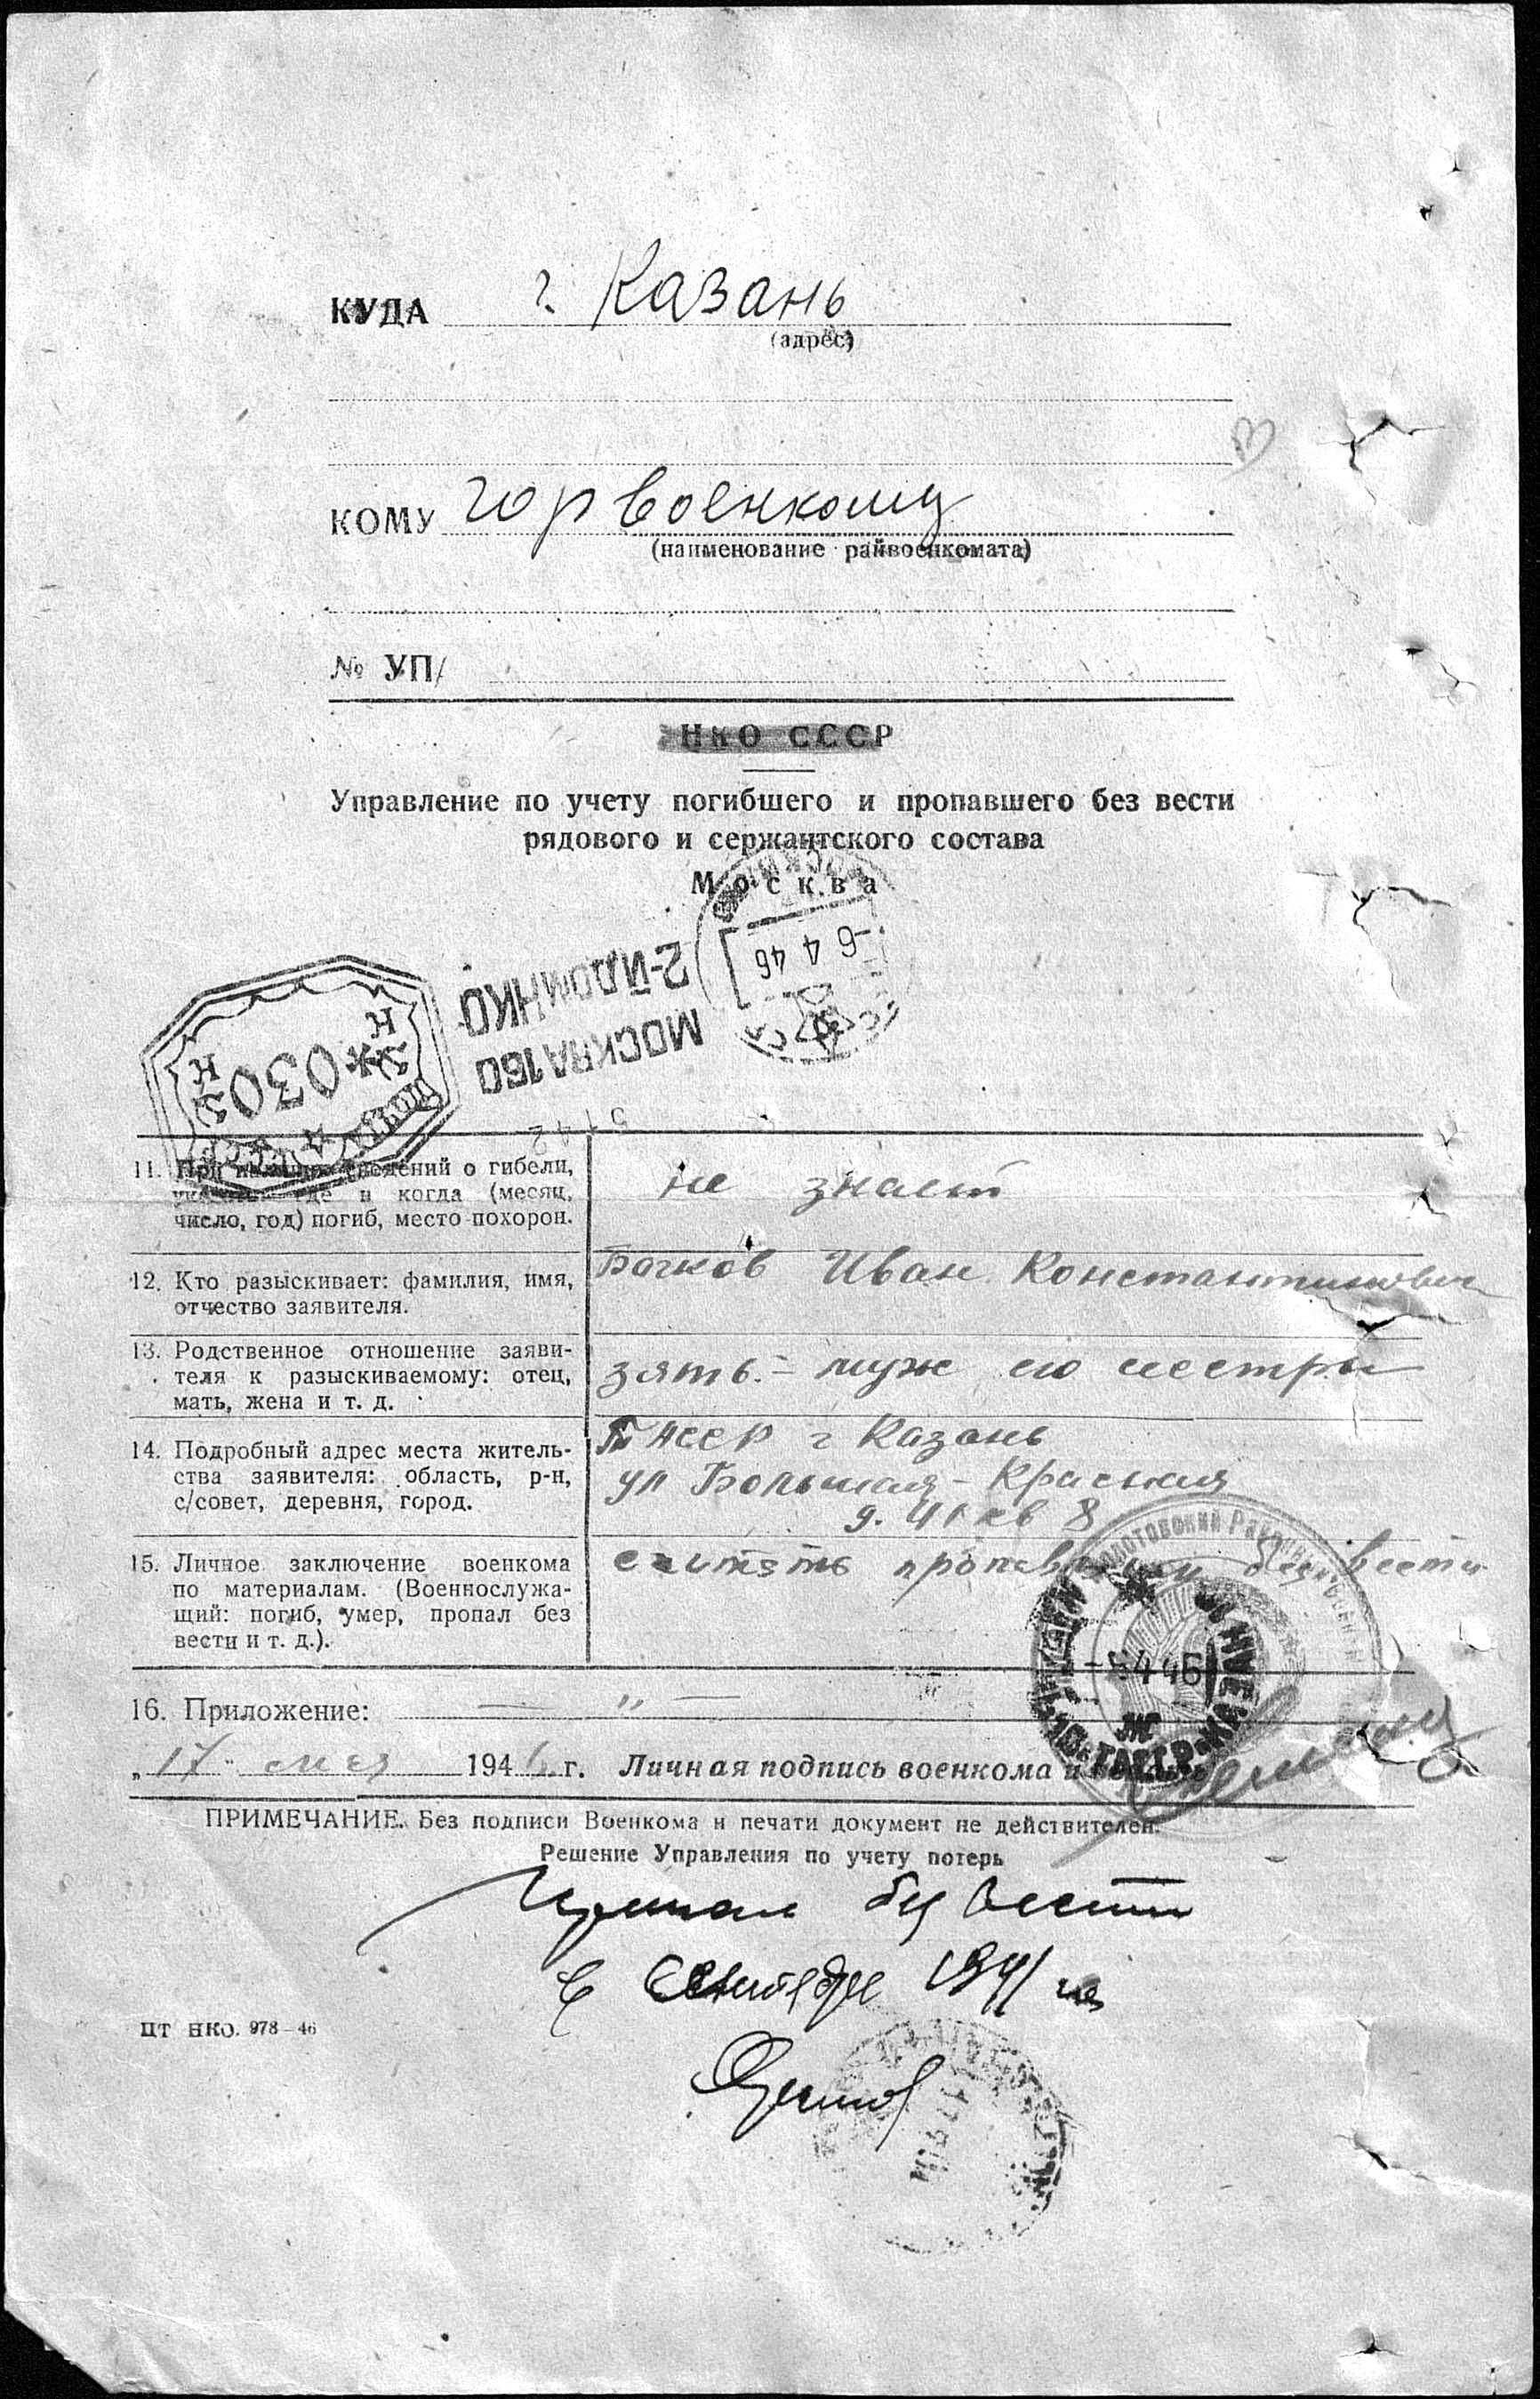 КУДА г. Казань
(адрес)
КОМУ горвоенкому
(наименование райвоенкомата)
№ УП/
НКО СССР
Управление по учету погибшего и пропавшего без вести
рядового и сержантского состава
Москва
-6 4 46
2-Й ДОМ НКО
МОСКВА 160
030
ПОЧТА
11. При наличии сведений о гибели,
указать где и когда (месяц,
число, год) погиб, место похорон.
не знает
12. Кто разыскивает: фамилия, имя,
отчество заявителя.
Бочков Иван Константинович
13. Родственное отношение заяви-
теля к разыскиваемому: отец,
мать, жена и т. д.
зять - муж его сестры
14. Подробный адрес места житель-
ства заявителя: область, р-н,
с/совет, деревня, город.
ТАССР г Казань
ул Большая - Красная
д. 41 кв 8
15. Личное заключение военкома
по материалам. (Военнослужа-
щий: погиб, умер, пропал без
вести и т. д.).
считать пропавшим без вести
16. Приложение: — " —
„17" мая 1946 г. Личная подпись военкома и
ПРИМЕЧАНИЕ. Без подписи Военкома и печати документ не действителен.
Решение Управления по учету потерь
Пропал без вести
в сентябре 1941 г.
ЦТ НКО. 978—46